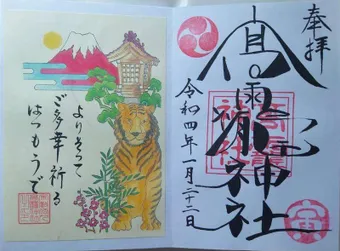 奉拝
高龗神社
令和四年一月二十二日
よりそって
ご多幸祈る
はつもうで